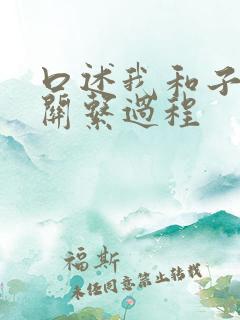 口述我和子
關繫過程
福斯
未经同意禁止转载